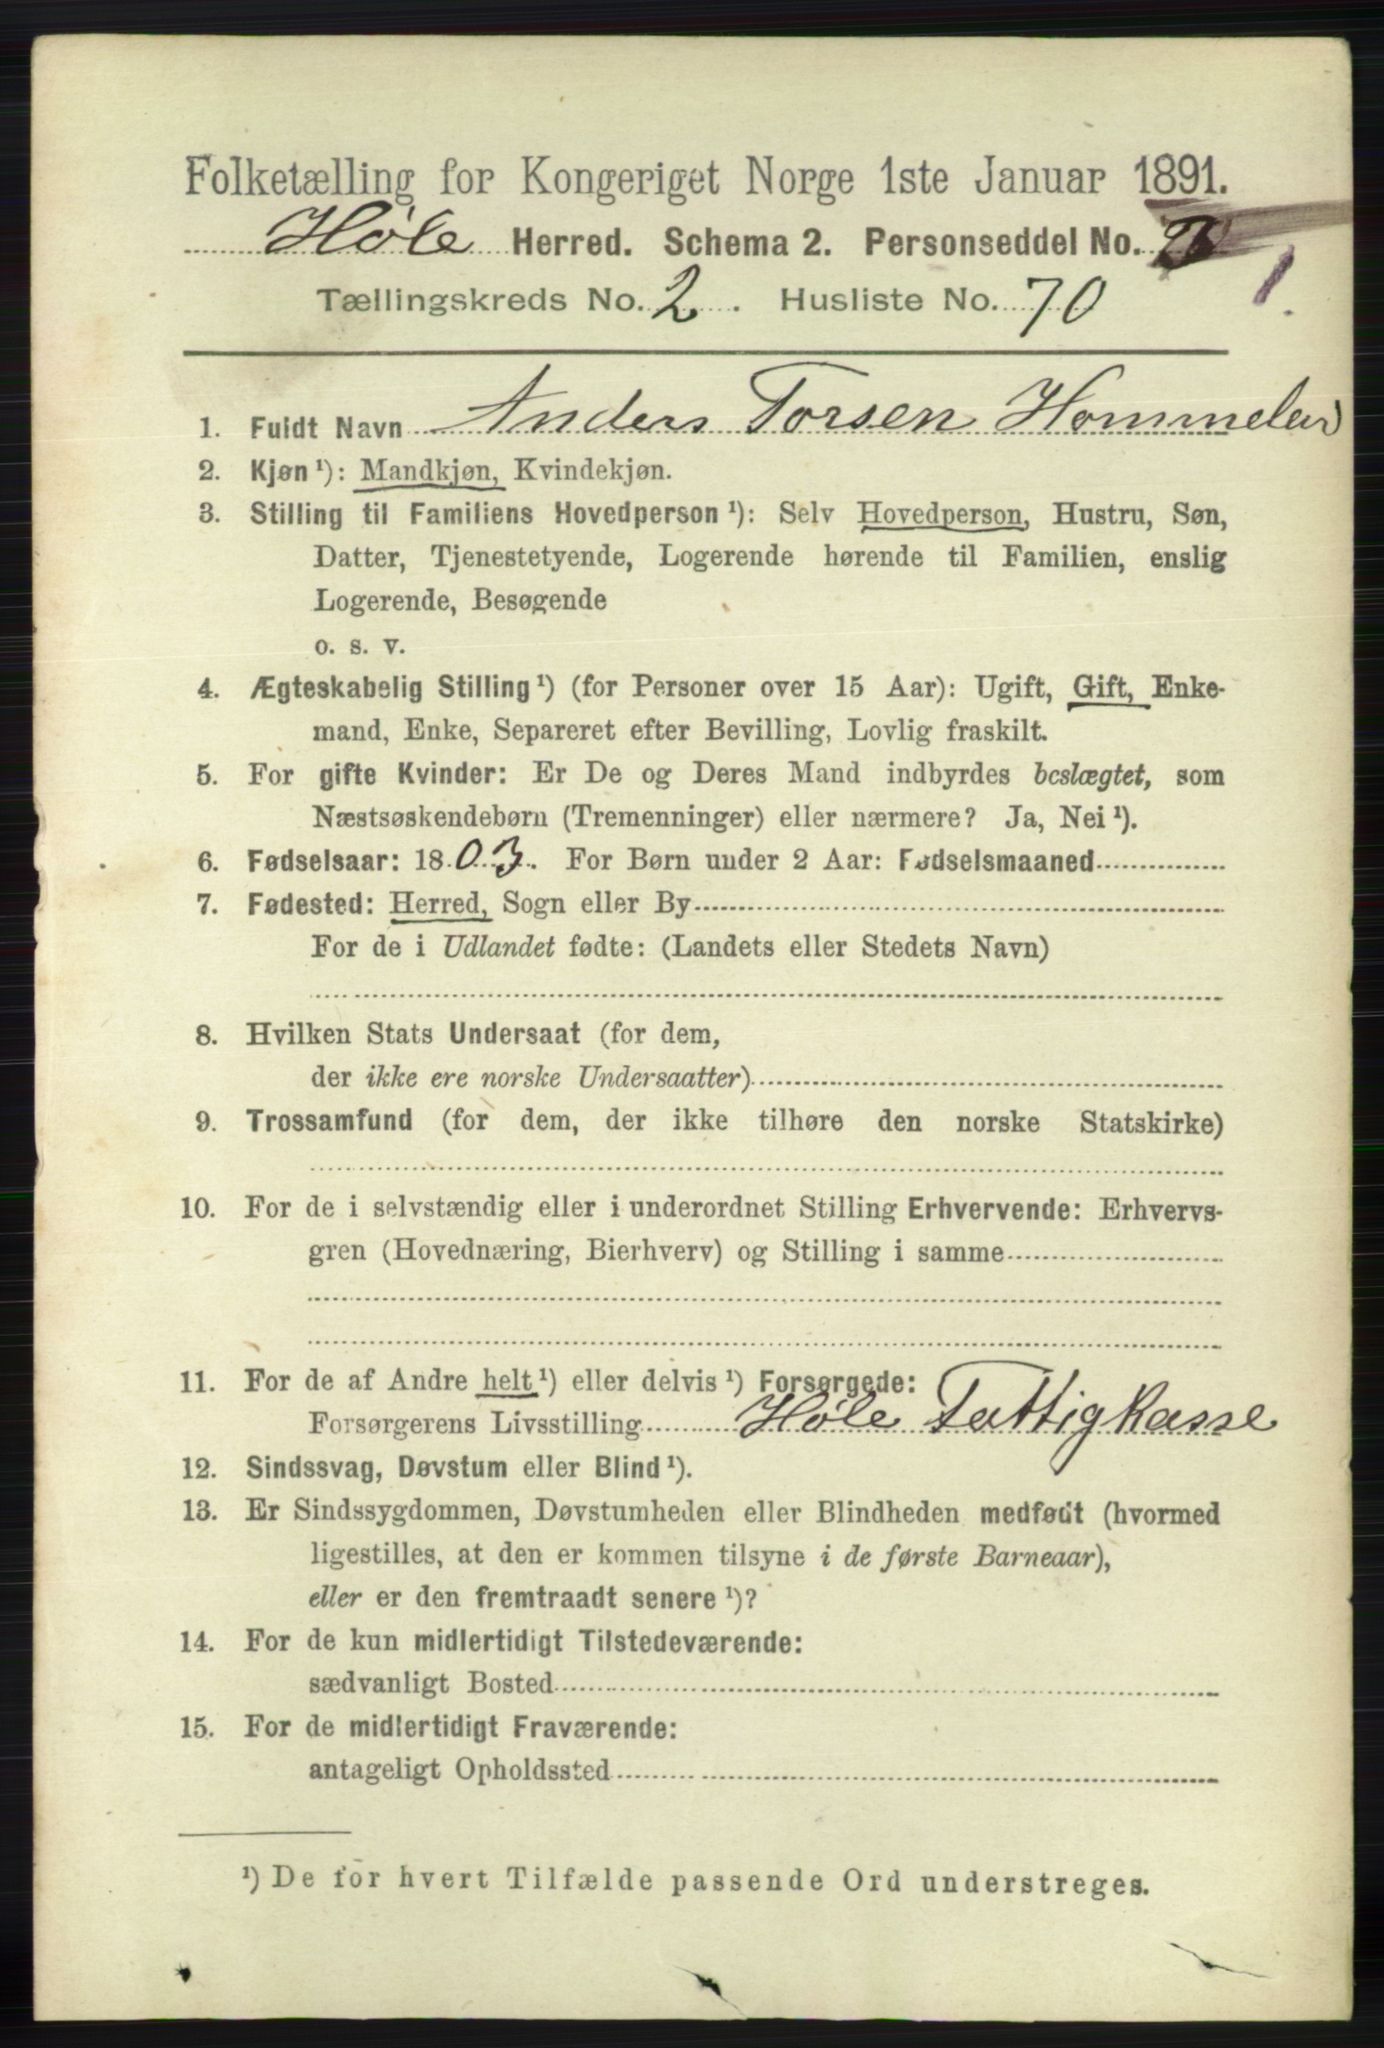 Folketælling for Kongeriget Norge 1ste Januar 1891.
Høle Herred. Schema 2. Personseddel No. 1
Tællingskreds No. 2. Husliste No. 70
1. Fuldt Navn Anders Torsen
2. Kjøn ¹): Mandkjøn, Kvindekjøn.
3. Stilling til Familiens Hovedperson ¹): Selv Hovedperson, Hustru, Søn,
Datter, Tjenestetyende, Logerende hørende til Familien, enslig
Logerende, Besøgende
o. s. v.
4. Ægteskabelig Stilling ¹) (for Personer over 15 Aar): Ugift, Gift, Enke-
mand, Enke, Separeret efter Bevilling, Lovlig fraskilt.
5. For gifte Kvinder: Er De og Deres Mand indbyrdes beslægtet, som
Næstsøskendebørn (Tremenninger) eller nærmere? Ja, Nei ¹).
6. Fødselsaar: 1803. For Børn under 2 Aar: Fødselsmaaned
7. Fødested: Herred, Sogn eller By
For de i Udlandet fødte: (Landets eller Stedets Navn)
8. Hvilken Stats Undersaat (for dem,
der ikke ere norske Undersaatter)
9. Trossamfund (for dem, der ikke tilhøre den norske Statskirke)
10. For de i selvstændig eller i underordnet Stilling Erhvervende: Erhvervs-
gren (Hovednæring, Bierhverv) og Stilling i samme
11. For de af Andre helt ¹) eller delvis ¹) Forsørgede:
Forsørgerens Livsstilling Høle Fattigkasse
12. Sindssvag, Døvstum eller Blind ¹).
13. Er Sindssygdommen, Døvstumheden eller Blindheden medfødt (hvormed
ligestilles, at den er kommen tilsyne i de første Barneaar),
eller er den fremtraadt senere ¹)?
14. For de kun midlertidigt Tilstedeværende:
sædvanligt Bosted
15. For de midlertidigt Fraværende:
antageligt Opholdssted
¹) De for hvert Tilfælde passende Ord understreges.